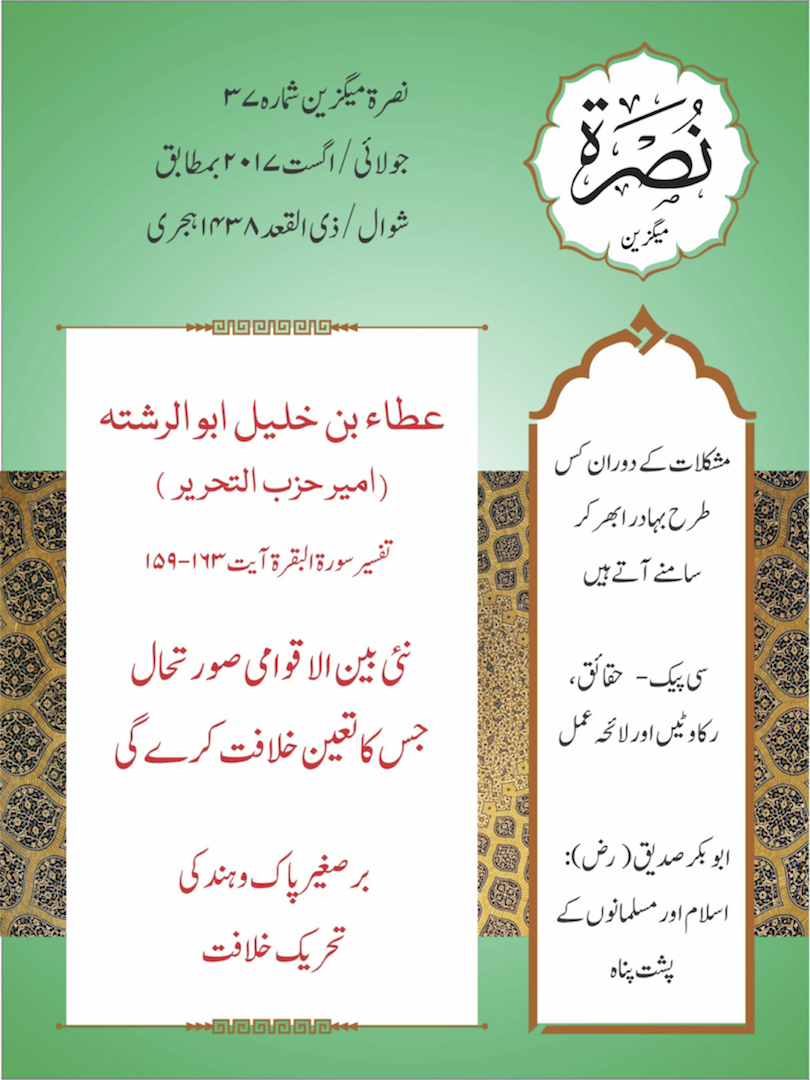 نُصْرَة
میگزین
نصرۃ میگزین شمارہ ۳۷
جولائی / اگست ۲۰۱۷ بمطابق
شوال / ذی القعد ۱۴۳۸ ہجری
مشکلات کے دوران کس
طرح بہادر ابھر کر
سامنے آتے ہیں
سی پیک - حقائق،
رکاوٹیں اور لائحہ عمل
ابو بکر صدیق (رض):
اسلام اور مسلمانوں کے
پشت پناہ
عطاء بن خلیل ابو الرشتہ
(امیر حزب التحریر)
تفسیر سورۃ البقرۃ آیت ۱۶۳-۱۵۹
نئی بین الاقوامی صورتحال
جس کا تعین خلافت کرے گی
برصغیر پاک و ہند کی
تحریک خلافت